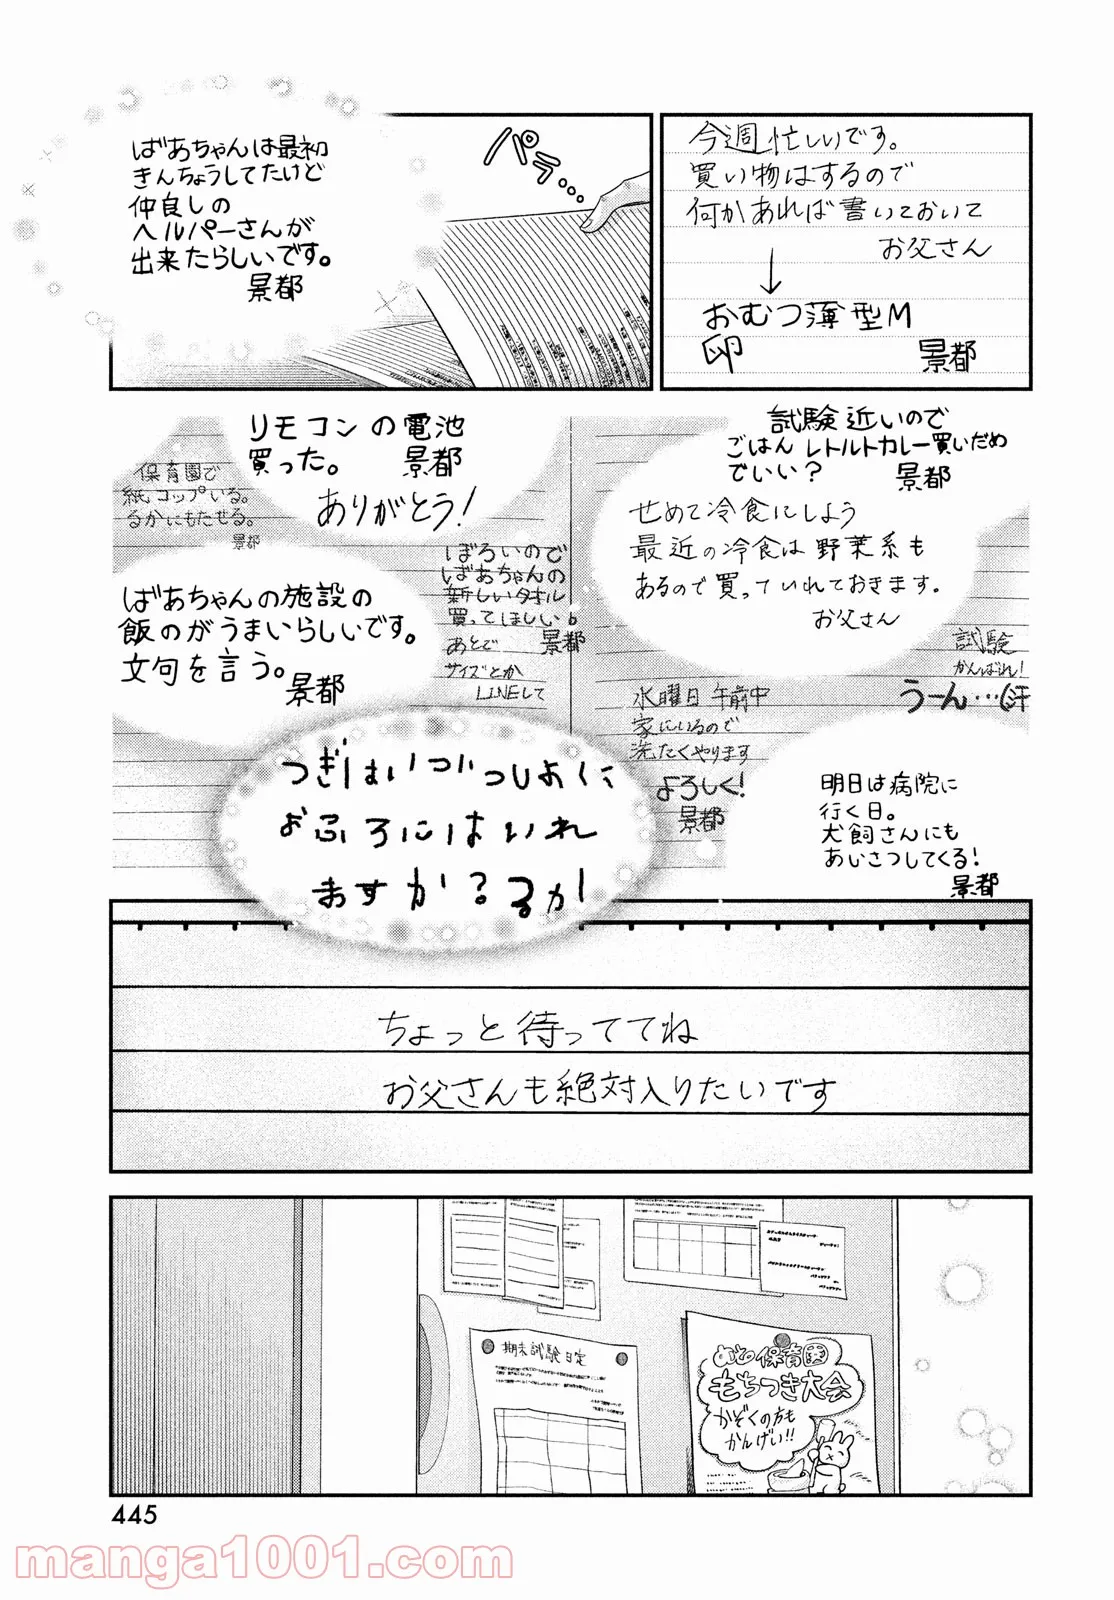 今週忙しいです。
買い物はするので
何かあれば書いておいて
お父さん
↓
おむつ薄型M
卵
景都
パラ…
ばあちゃんは最初
きんちょうしてたけど
仲良しの
ヘルパーさんが
出来たらしいです。
景都
試験近いので
ごはんレトルトカレー買いだめ
でいい？
景都
せめて冷食にしよう
最近の冷食は野菜系も
あるので買っていれておきます。
お父さん
試験
がんばれ!
うーん…(汗
リモコンの電池
買った。
景都
ありがとう!
保育園で
紙コップいる。
るかにもたせる。
景都
ぼろいので
ばあちゃんの
新しいタオル
買ってほしい。
景都
あとで
サイズとか
LINEして
ばあちゃんの施設の
飯のがうまいらしいです。
文句を言う。
景都
水曜日午前中
家にいるので
洗たくやります
よろしく!
景都
明日は病院に
行く日。
犬飼さんにも
あいさつしてくる!
景都
つぎはいついっしょに
おふろにはいれ
ますか？るか
ちょっと待っててね
お父さんも絶対入りたいです
期末試験日定
保育園
もちつき大会
かぞくの方も
かんげい!!
445
manga1001.com